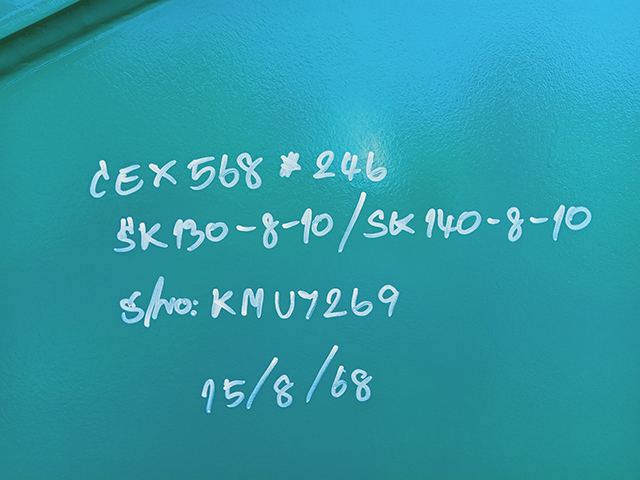 CEX568*246
SK130-8-10/SK140-8-10
S/no: KMU7269
15/8/68